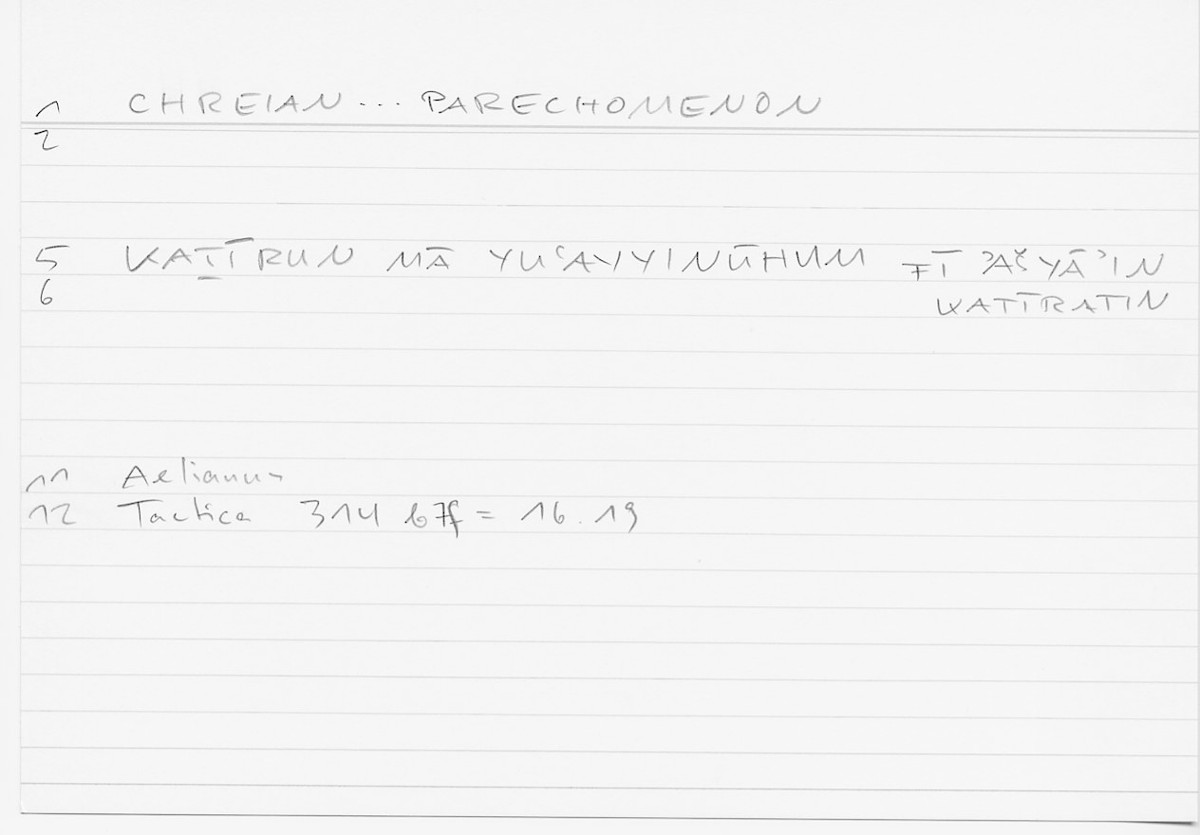 1 CHREIAN ... PARECHOMENON
2
5 KAṮĪRUN MĀ YUʿAYYINŪHUM FĪ ʾAŠYĀʾIN
6 KATĪRATIN
11 Aelianus
12 Tactica 314 b7f = 16.19